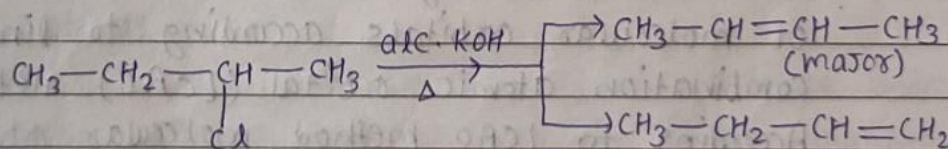 CH3—CH2—CH—CH3
Cl
alc. KOH
Δ
CH3—CH=CH—CH3
(major)
CH3—CH2—CH=CH2